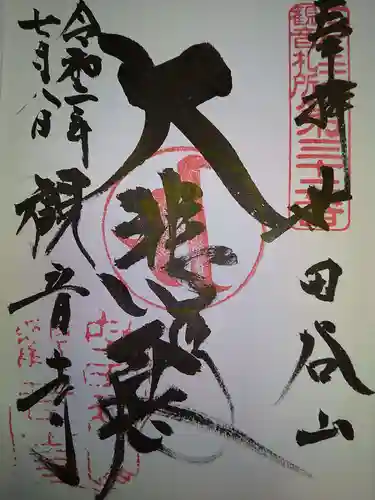 奉拝 世田谷山
観音札所第三十二番
大悲殿
令和二年
七月八日
観音寺